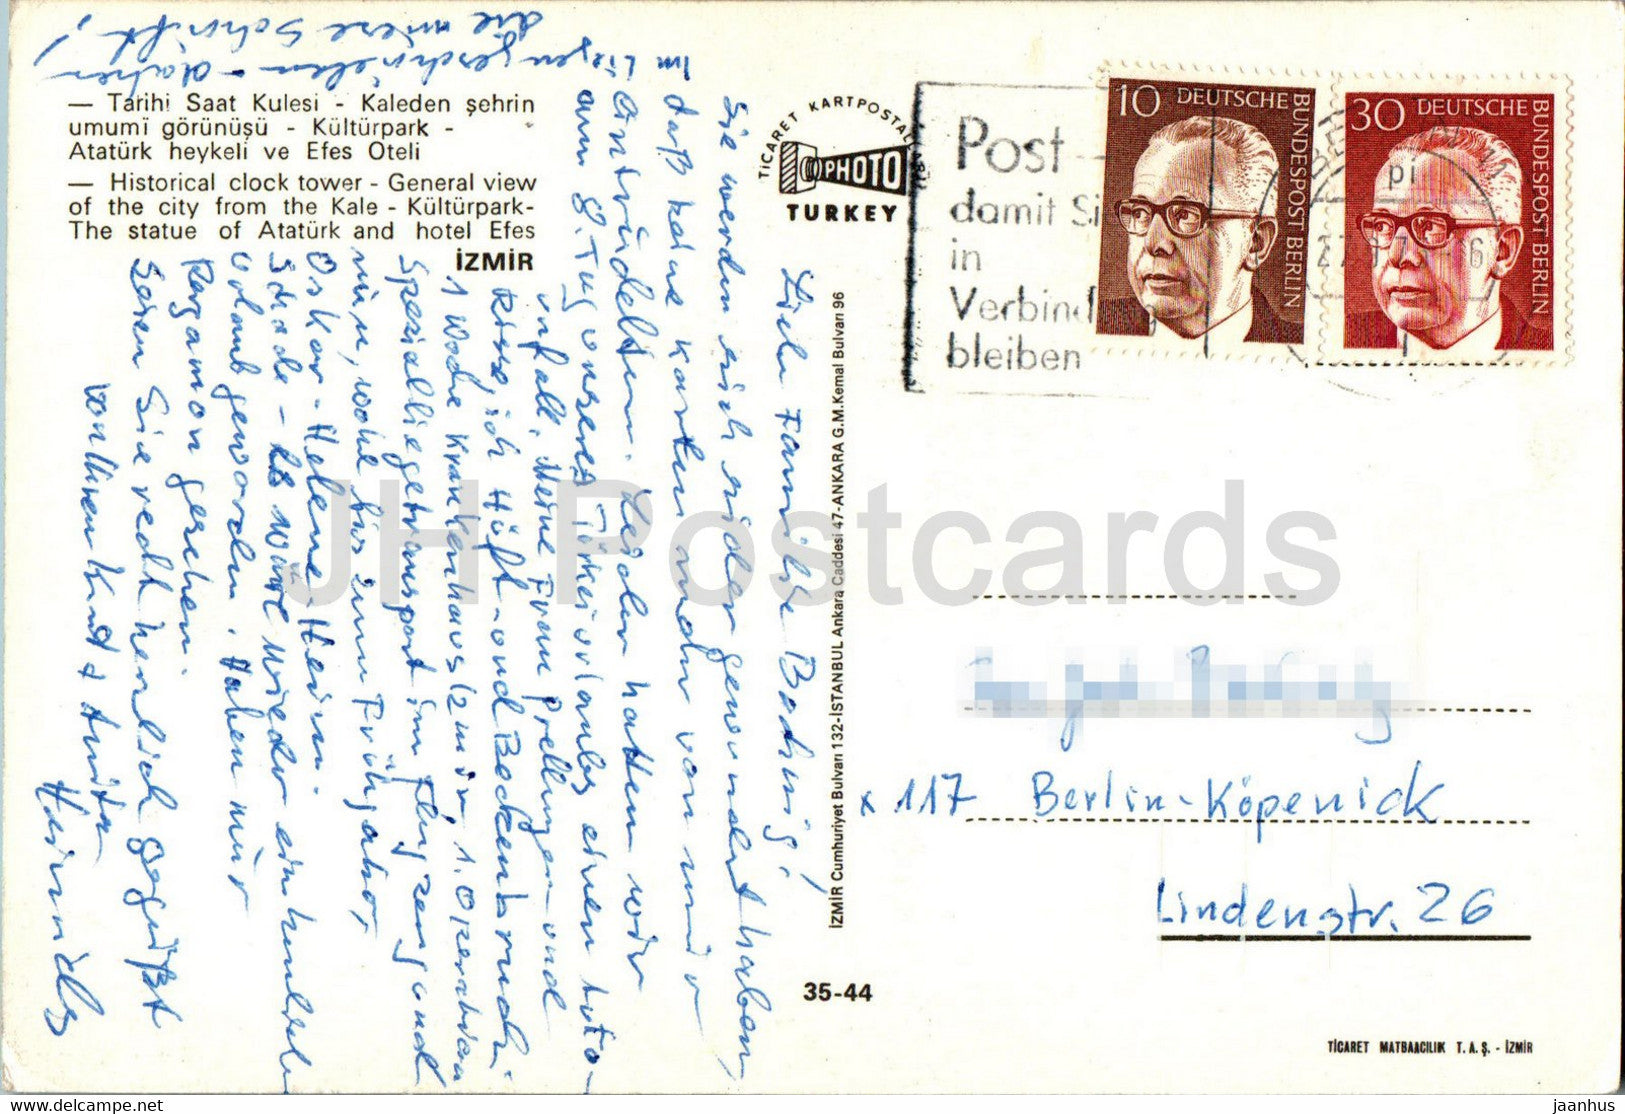 Im Liegen geschrieben - daher
die miese Schrift!
— Tarihi Saat Kulesi - Kaleden şehrin
umumî görünüşü - Kültürpark -
Atatürk heykeli ve Efes Oteli
— Historical clock tower - General view
of the city from the Kale - Kültürpark-
The statue of Atatürk and hotel Efes
İZMİR
Liebe Familie
Sie werden sich sicher gewundert haben,
daß keine Karten mehr von mir
eintrudelten. Leider hatten wir
am 8. Tag unseres Türkeiurlaubs einen Auto-
unfall. Meine Frau Prellungen und
Risse, ich Hüft- und Beckenbruch.
1 Woche Krankenhaus Izmir, 1. Operation
Spezialliegetransport im Flugzeug und
nun, wohl bis zum Frühjahr,
Oskar-Helene-Heim.
Schade - es wäre wieder ein
Urlaub geworden. Haben nur
Pergamon gesehen.
Seien Sie recht herzlich gegrüßt
von Ihren
TİCARET KARTPOSTAL
PHOTO
TURKEY
İZMİR Cumhuriyet Bulvarı 132-İSTANBUL Ankara Caddesi 47-ANKARA G.M.Kemal Bulvarı 96
35-44
Post -
damit Si
in
Verbind
bleiben
10 DEUTSCHE BUNDESPOST BERLIN
30 DEUTSCHE BUNDESPOST BERLIN
pi
x 117 Berlin-Köpenick
Lindenstr. 26
TİCARET MATBAACILIK T. A. Ş. - İZMİR
JH Postcards
https://www.delcampe.net
jaanhus